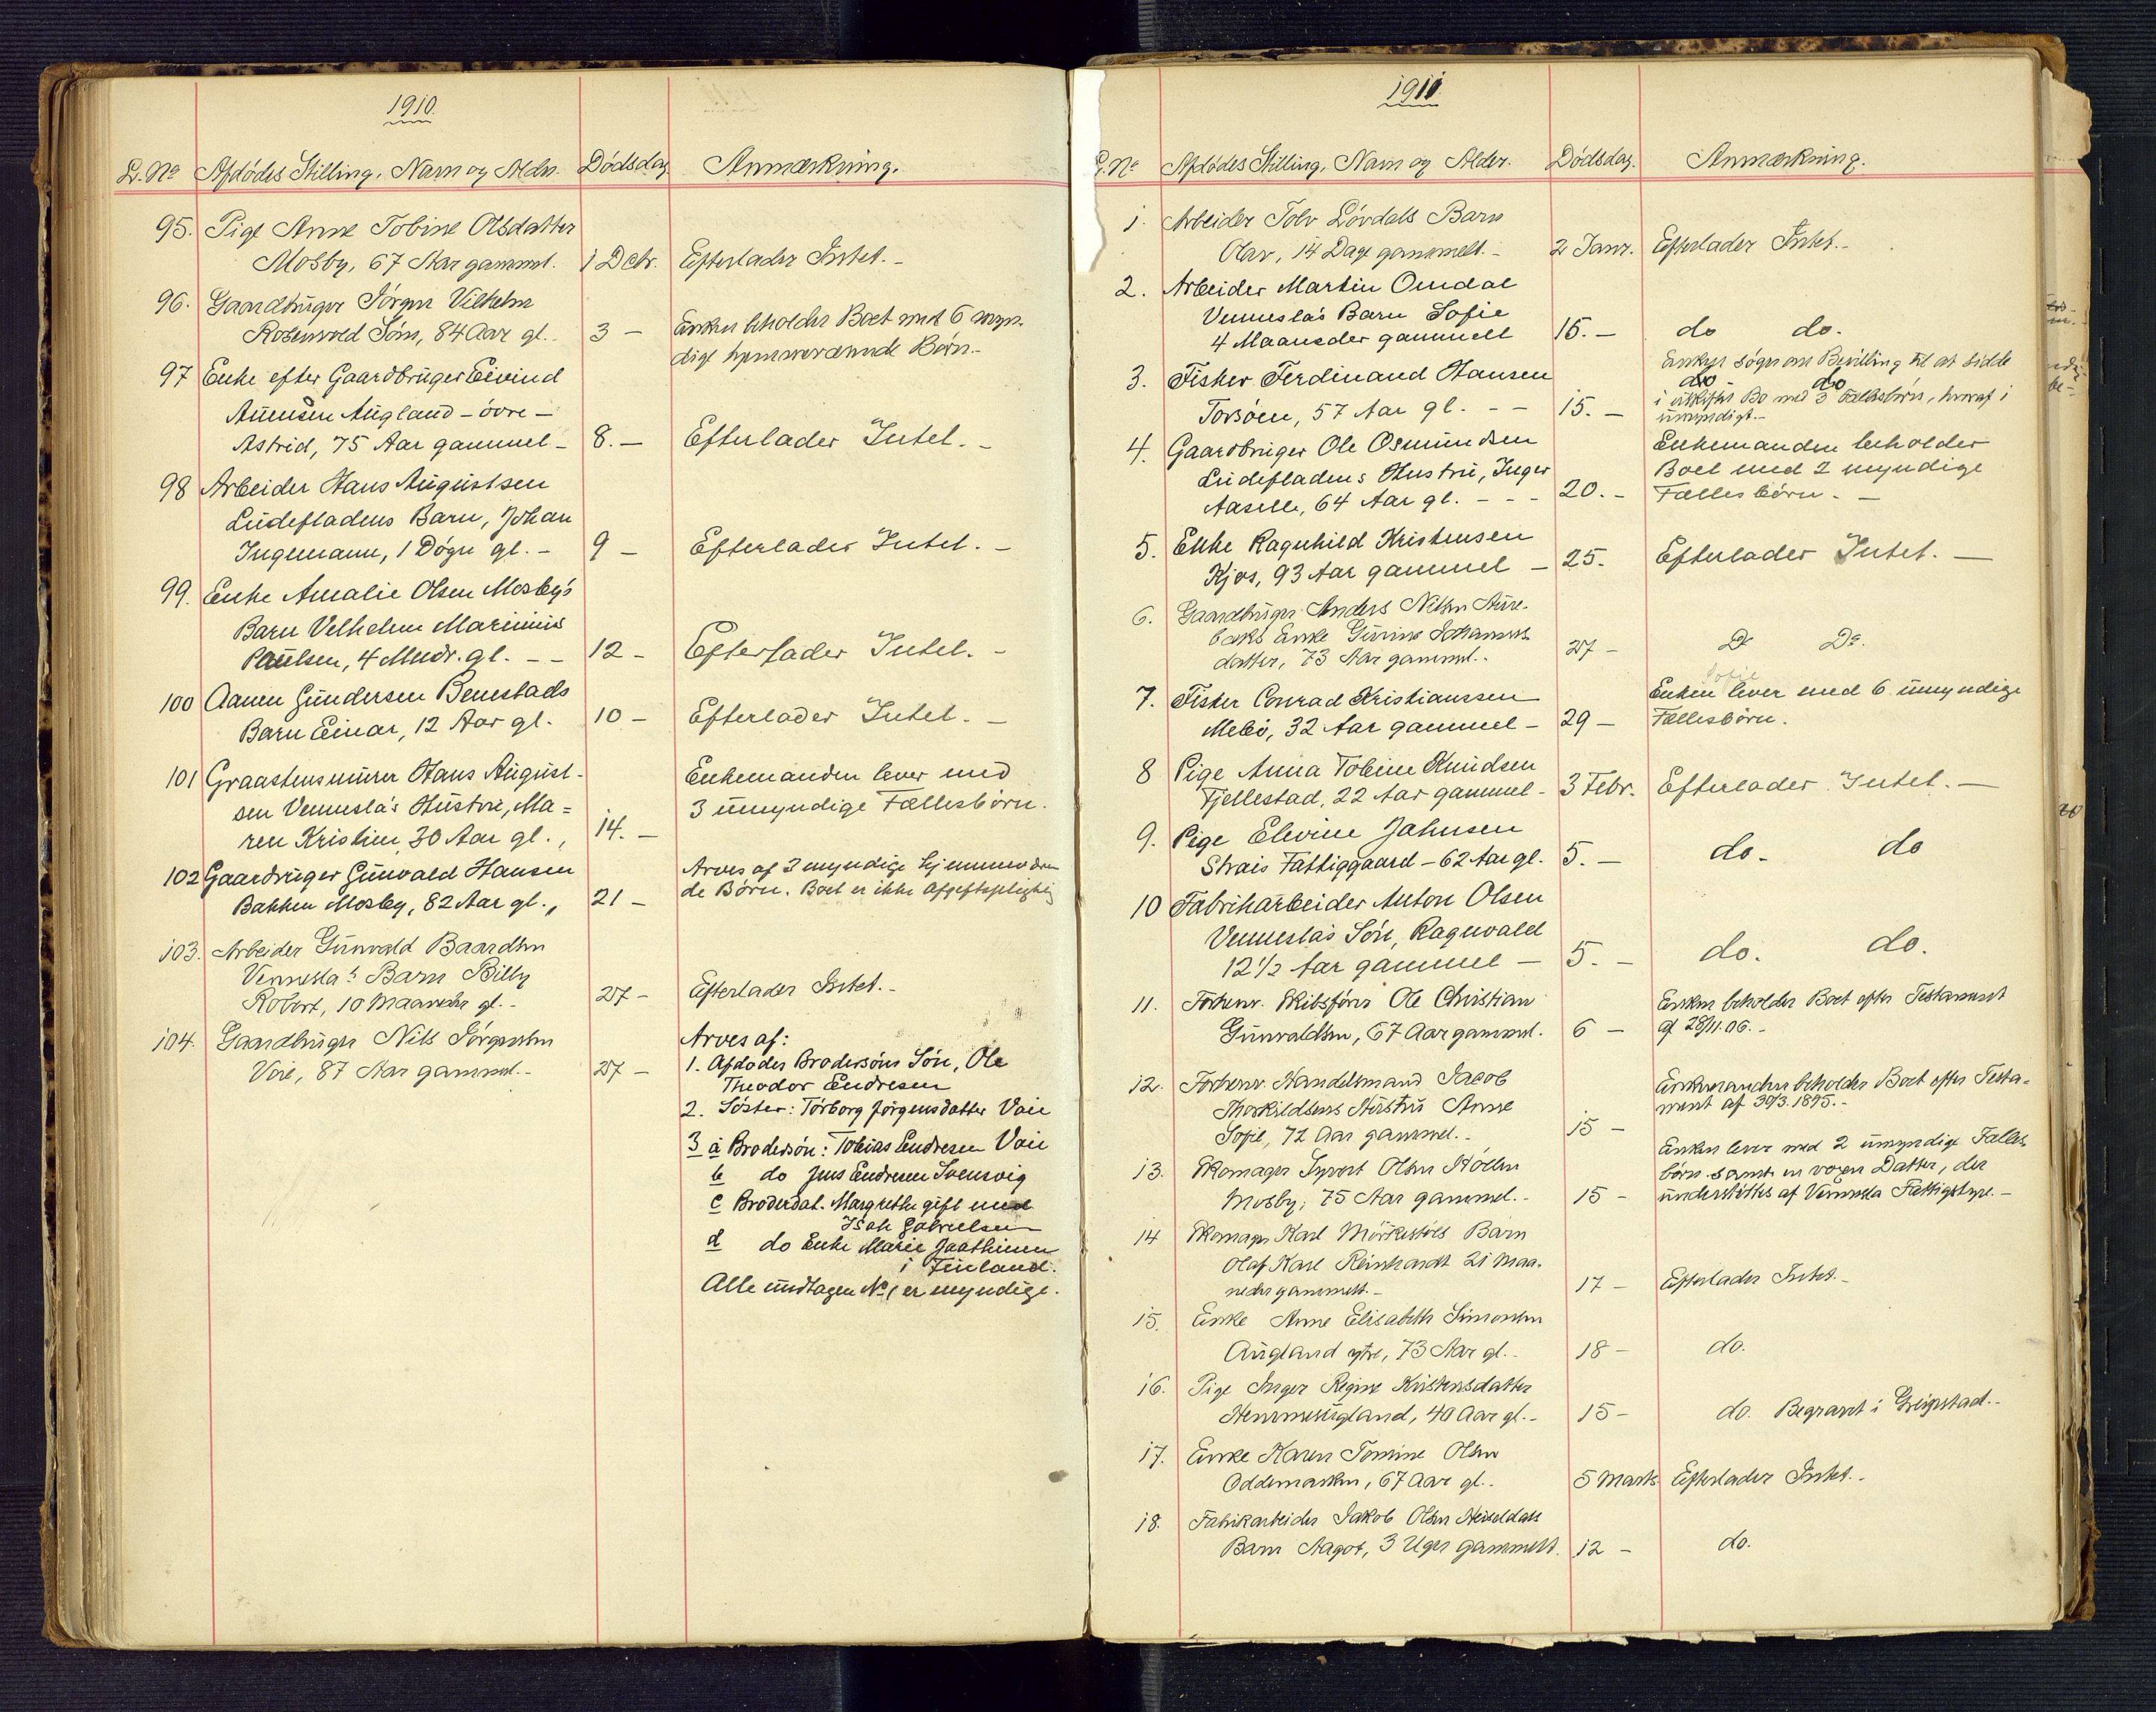 1910.
L. No Afdødes Stilling, Navn og Alder. Dødsdag Anmærkning.
95. Pige Anne Tobine Olsdatter
Mosby, 67 Aar gammel. 1 Dcbr. Efterlader Intet.-
96. Gaardbruger Jørgen Vilhelm
Rosenvold Søm, 84 Aar gl. 3 - Enken beholder Boet med 6 myn-
dige hjemmeværende Børn.-
97 Enke efter Gaardbruger Eivind
Aunsen Augland - øvre -
Astrid, 75 Aar gammel - 8. - Efterlader Intet. -
98 Arbeider Hans Augustsen
Ludefladens Barn, Johan
Ingemann, 1 Døgn gl. - 9 - Efterlader Intet. -
99. Enke Amalie Olsen Mosby's
Barn Velhelm Marinius
Paulsen, 4 Mndr. gl. - - 12 - Efterlader Intet. -
100 Aanen Gundersen Benestads
Barn Einar, 12 Aar gl. 10 - Efterlader Intet. -
101 Graastensmurer Hans August-
sen Vennesla's Hustru, Ma=
ren Kristine 30 Aar gl., 14. -
Enkemanden lever med
3 umyndige Fællesbørn.
102 Gaardbruger Gunvald Hansen
Bakken Mosby, 82 Aar gl., 21 -
Arves af 3 myndige hjemmeværen
de Børn. Boet er ikke Afgiftspligtig
103. Arbeider Gunvald Baardsen
Vennesla's Barn Billy
Robert, 10 Maaneder gl.- 27 - Efterlader Intet.-
104. Gaardbruger Nils Jørgensen
Voie, 87 Aar gammel.- 27 -
Arves af:
1. Afdødes Brodersøns Søn, Ole
Theodor Endresen
2. Søster: Tørborg Jørgensdatter Voie
3 a Brodersøn: Tobias Endresen Voie
b do Jens Endresen Svensvig
c Broderdat. Margrethe gift med
Isak Gabrielsen
d do Enke Marie Jaathinen
i Finland.
Alle undtagen No 1 er myndige.
1911
L. No Afdødes Stilling, Navn og Alder. Dødsdag. Anmærkning.
1. Arbeider Tolv Løvdals Barn
Olav, 14 Dage gammelt.- 2 Janr. Efterlader Intet.-
2. Arbeider Martin Omdal
Vennesla's Barn Sofie
4 Maaneder gammelt 15. - do do.
3. Fisker Ferdinand Hansen
Torsøen, 57 Aar gl. - - 15. -
Enken søger om Bevilling til at sidde
do do
i uskiftet Bo med 3 Fællesbørn, hvoraf 1
umyndigt.-
4. Gaardbruger Ole Osmundsen
Ludefladens Hustru, Inger
Aaselle, 64 Aar gl. - - - 20. -
Enkemanden beholder
Boet med 2 myndige
Fællesbørn. -
5. Enke Ragnhild Kristensen
Kjos, 93 Aar gammel - 25. Efterlader Intet. -
6. Gaardbruger Anders Nilsen Aure-
baks Enke Gurine Johannes-
datter, 73 Aar gammel.- 27 - Do Do.
7. Fisker Conrad Kristianssen
Mebø, 32 Aar gammel - 29 -
Sofie
Enken lever med 6 umyndige
Fællesbørn.
8 Pige Anna Tobine Knudsen
Fjellestad, 22 Aar gammel - 3 Febr. Efterlader Intet. -
9. Pige Elevine Jahnsen
Strais Fattiggaard - 62 Aar gl. 5. - do - do
10 Fabrikarbeider Anton Olsen
Vennesla's Søn, Ragnvald
12 1/2 Aar gammel - 5. - do. do.
11. Forhenv. Skibsfører Ole Christian
Gunvaldsen, 67 Aar gammel. 6 -
Enken beholder Boet efter Testament
af 28/11.06.-
12. Forhenv. Handelsmand Jacob
Thorkildsens Hustru Anne
Sofie, 72 Aar gammel.- 15 -
Enkemanden beholder Boet efter Testa-
ment af 30/3.1895.-
13. Skomager Syvert Olsen Støllen
Mosby, 75 Aar gammel.- 15 -
Enken lever med 2 umyndige Fælles
børn samt en voxen Datter, der
understøttes af Vennesla Fattigstyre.-
14 Skomager Karl Mørkestøls Barn
Olaf Karl Reinhardt 21 Maa-
neder gammelt.- 17 - Efterlader Intet.-
15. Enke Anne Elisabeth Simonsen
Augland ytre, 73 Aar gl.- 18 - do.
16. Pige Inger Regine Kristensdatter
Hemmesugland, 40 Aar gl.- 15 - do. Begravet i Greipstad.-
17. Enke Karen Tomine Olsen
Oddemarken, 67 Aar gl.- 5 Marts Efterlader Intet.-
18. Fabrikarbeider Jakob Olsen Heiseldals
Barn Aagot, 3 Uger gammelt. 12 - do.